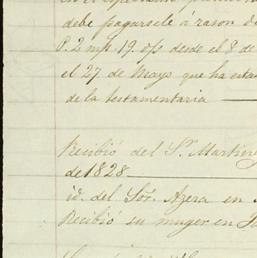 debe pagarsele á razon de
P. 2 mp. 19. ops desde el 8 de
el 27 de Mayo que ha estado
de la testamentaria
Recibió del Sr. Martinez
de 1828
id. del Sor. Azera en
Recibió su muger en